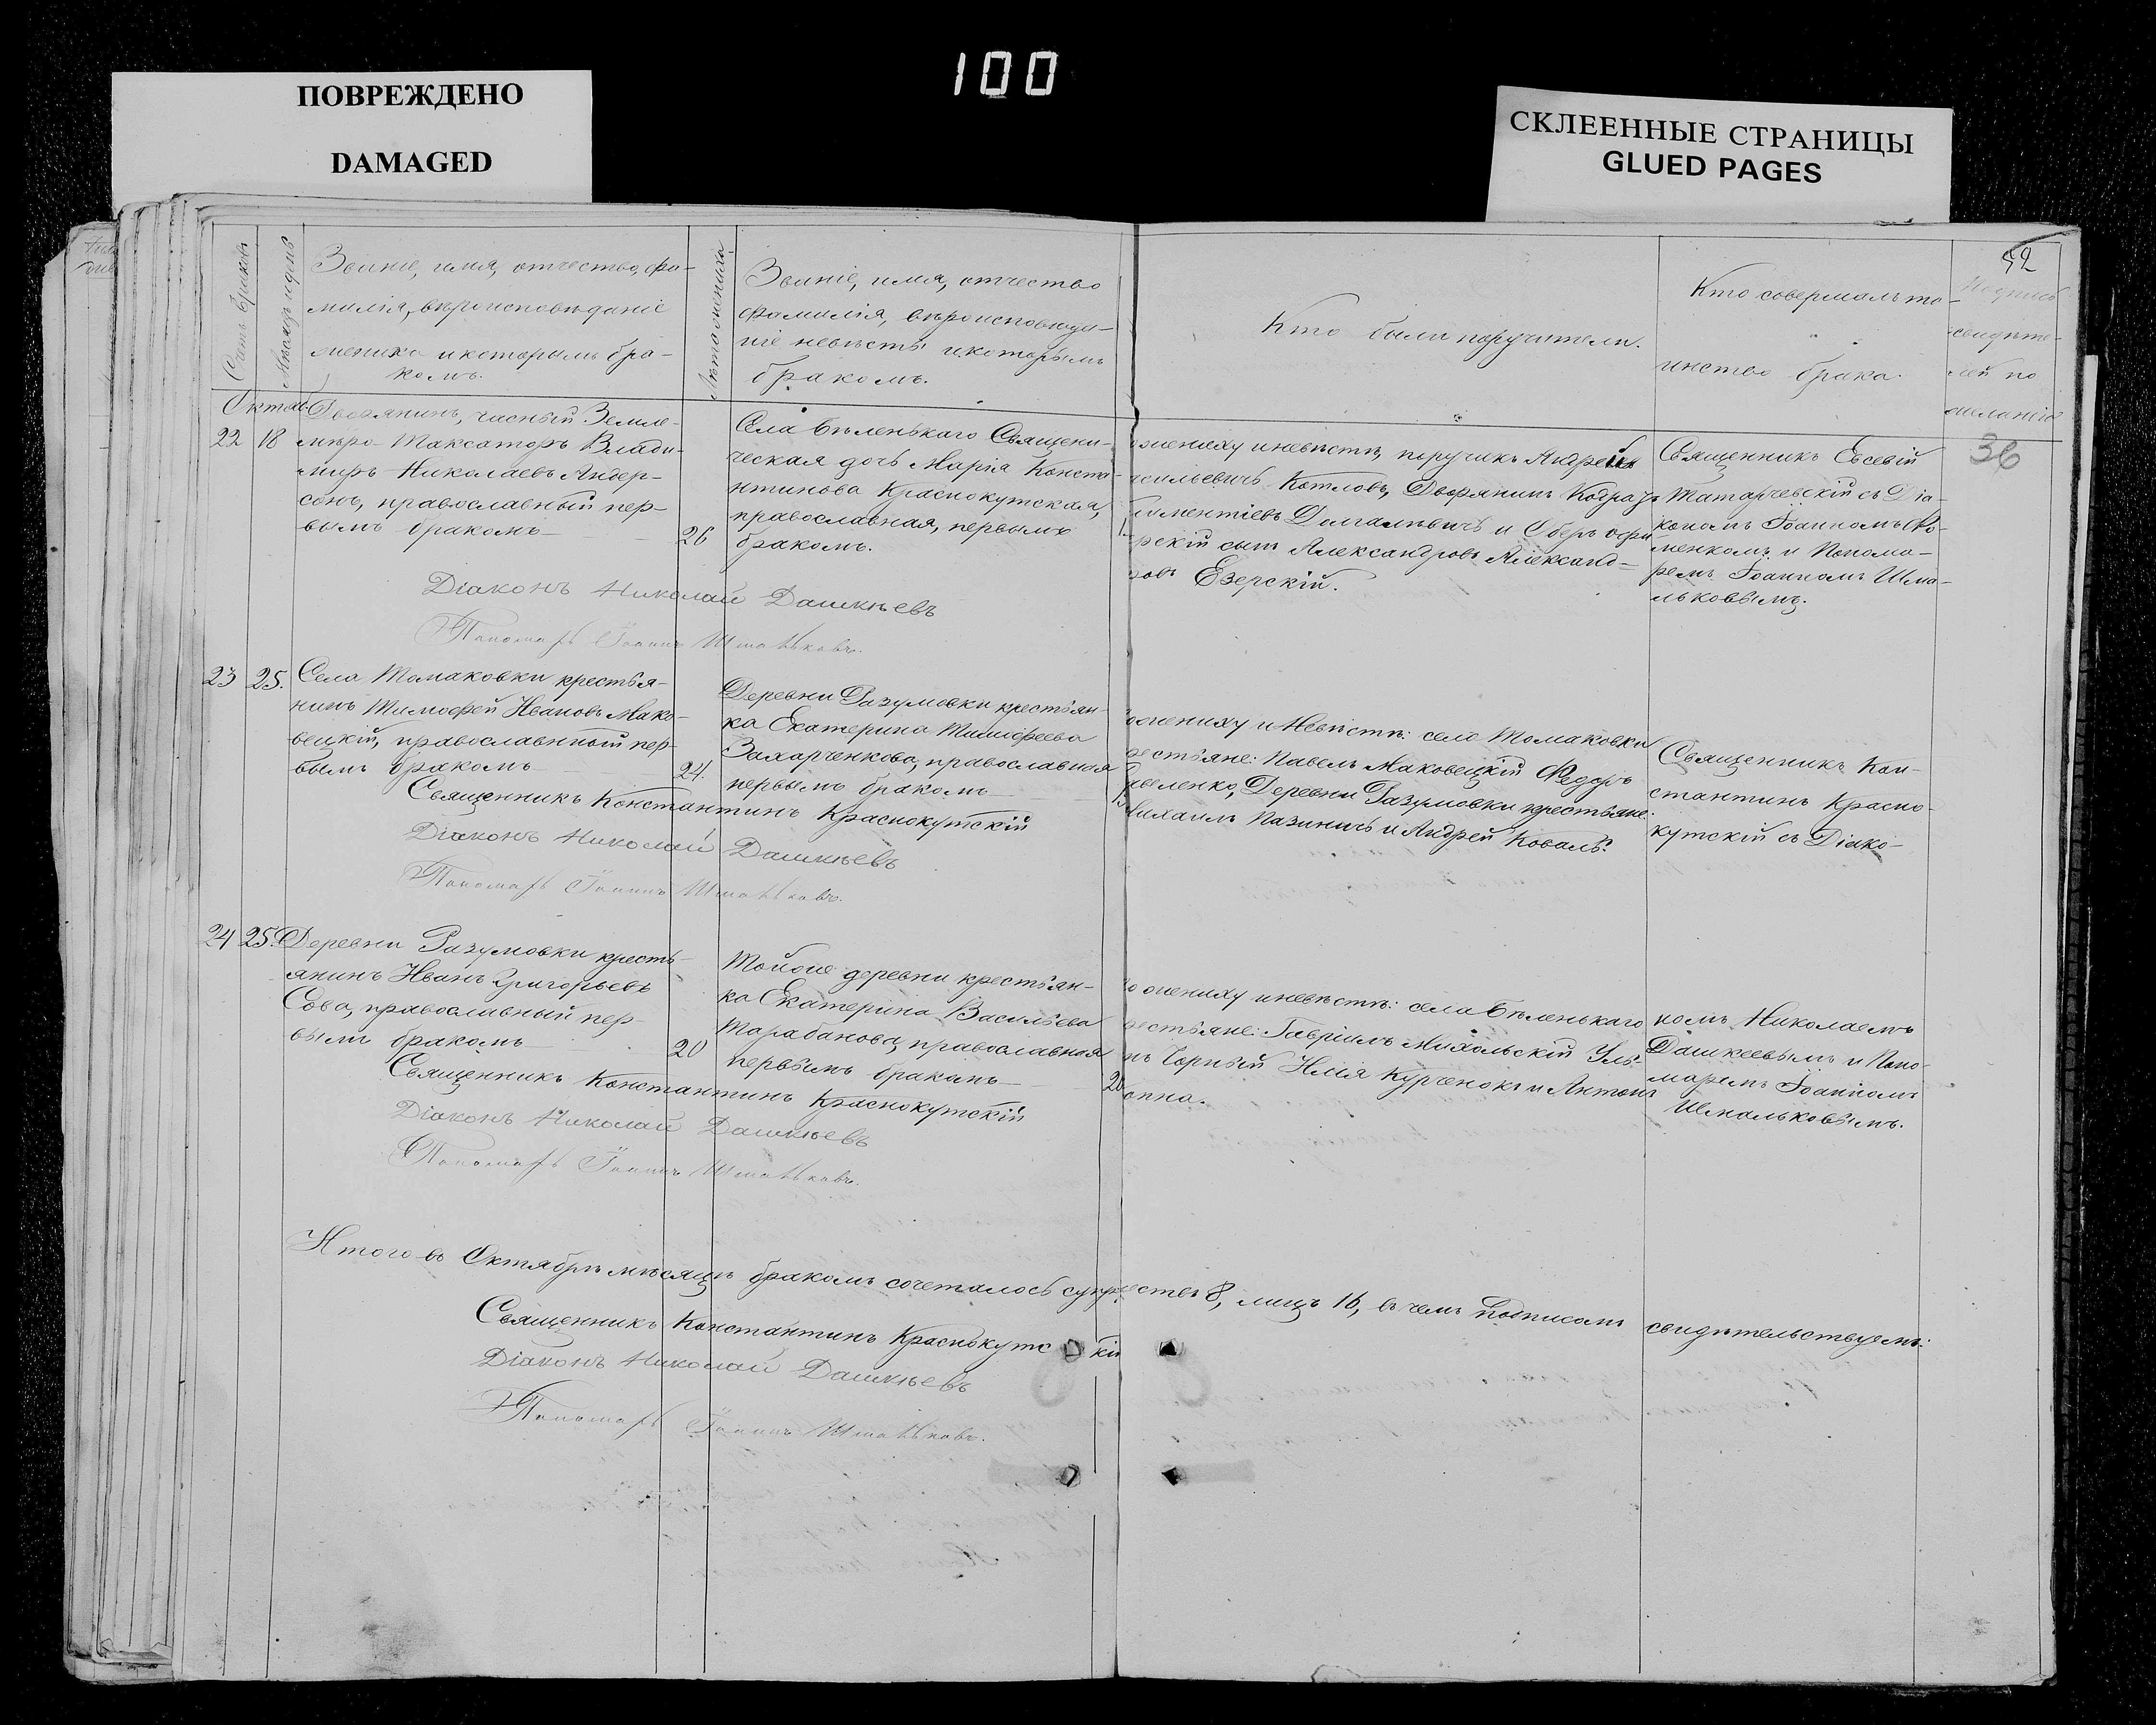 100
ПОВРЕЖДЕНО
DAMAGED
СКЛЕЕННЫЕ СТРАНИЦЫ
GLUED PAGES
52
Счетъ браковъ
Мѣсяцъ и день
Званіе, имя, отчество, фа-
милія, вѣроисповѣданіе
жениха и которымъ бра-
комъ.
Лѣта жениха
Званіе, имя, отчество
фамилія, вѣроисповѣда-
ніе невѣсты и которымъ
бракомъ.
Кто были поручители.
Кто совершалъ та-
инство брака.
Подпись
свидѣте-
лей по
желанію
36
Октяб.
22 18
Дворянинъ, часный Земле-
мѣръ Таксаторъ Влади-
миръ Николаевъ Андер-
сонъ, православный пер-
вымъ бракомъ
26
Села Бѣленькаго Священи-
ческая дочь Марія Конста-
нтинова Краснокутская,
православная, первымъ
бракомъ.
жениху и невѣстѣ, поручикъ Андрей
асильевичъ Котловъ, Дворянинъ
и Оберъ офи-
рскій сынъ Александръ Александ-
ровъ Езерскій.
Священникъ Евсевій
Татарчевскій съ Діа-
кономъ Іоанномъ
менкомъ и Понома-
ремъ Іоанномъ Шма-
льковымъ.
Діаконъ Николай Дашкѣевъ
Пономарь Іоаннъ Шмальковъ.
23 25.
Села Томаковки крестья-
нинъ Тимофей Ивановъ Мако-
вецкій, православный пер-
вымъ бракомъ
24.
Деревни Разумовки крестьян-
ка Екатерина Тимофеева
Захарченкова, православная
первымъ бракомъ
жениху и Невѣстѣ: села Томаковки
рестьяне: Павелъ Маковецкій Федоръ
вленко, Деревни Разумовки крестьяне:
Михаилъ Пазиничъ и Андрей Коваль.
Священникъ Кон-
стантинъ Красно-
кутскій съ Діако-
Священникъ Константинъ Краснокутскій
Діаконъ Николай Дашкѣевъ
Пономарь Іоаннъ Шмальковъ.
24 25.
Деревни Разумовки кресть-
янинъ Иванъ Григорьевъ
Сова, православный пер-
вымъ бракомъ
20
Тойже деревни крестьян-
ка Екатерина Васильева
Тарабанова, православная
первымъ бракомъ
20
о жениху и невѣстѣ: села Бѣленькаго
рестьяне: Гавріилъ Михольскій
Чорный Илія Курченокъ и Антонъ
номъ Николаемъ
Дашкеевымъ и Поно-
маремъ Іоанномъ
Шмальковымъ.
Священникъ Константинъ Краснокутскій
Діаконъ Николай Дашкѣевъ
Пономарь Іоаннъ Шмальковъ.
Итого въ Октябрѣ мѣсяцѣ бракомъ сочеталось супружествъ 8, лицъ 16, въ чемъ подписомъ свидѣтельствуемъ:
Священникъ Константинъ Краснокутскій
Діаконъ Николай Дашкѣевъ
Пономарь Іоаннъ Шмальковъ.